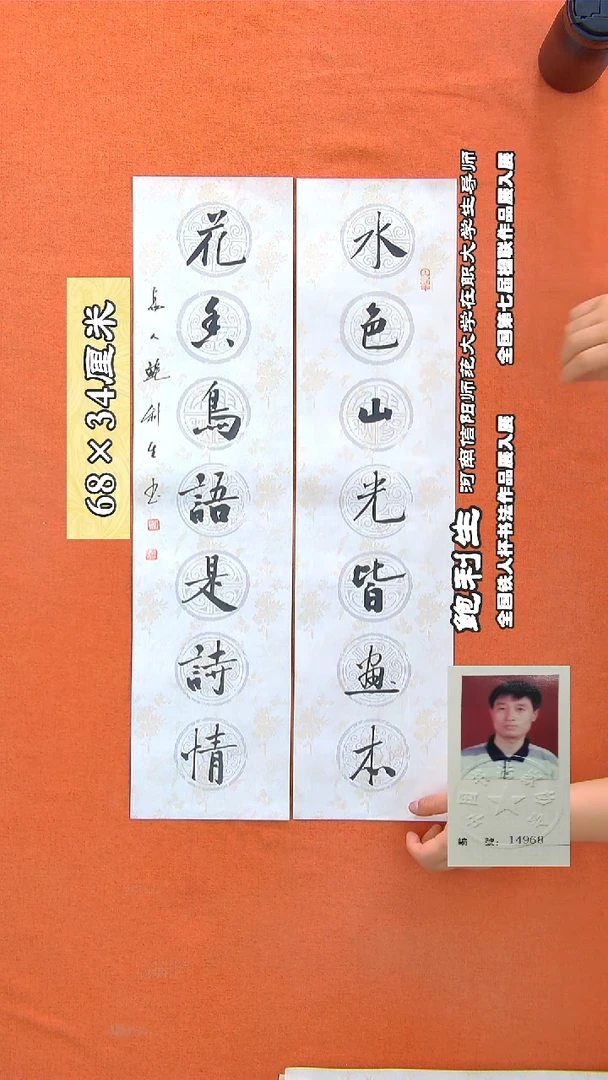 水色山光皆畫本
花香鳥語是詩情
鲍利生书
68×34厘米
鲍利生
河南信阳师范大学在职大学生导师
全国铁人杯书法作品展入展
全国第七届楹联作品展入展
编 號: 14968